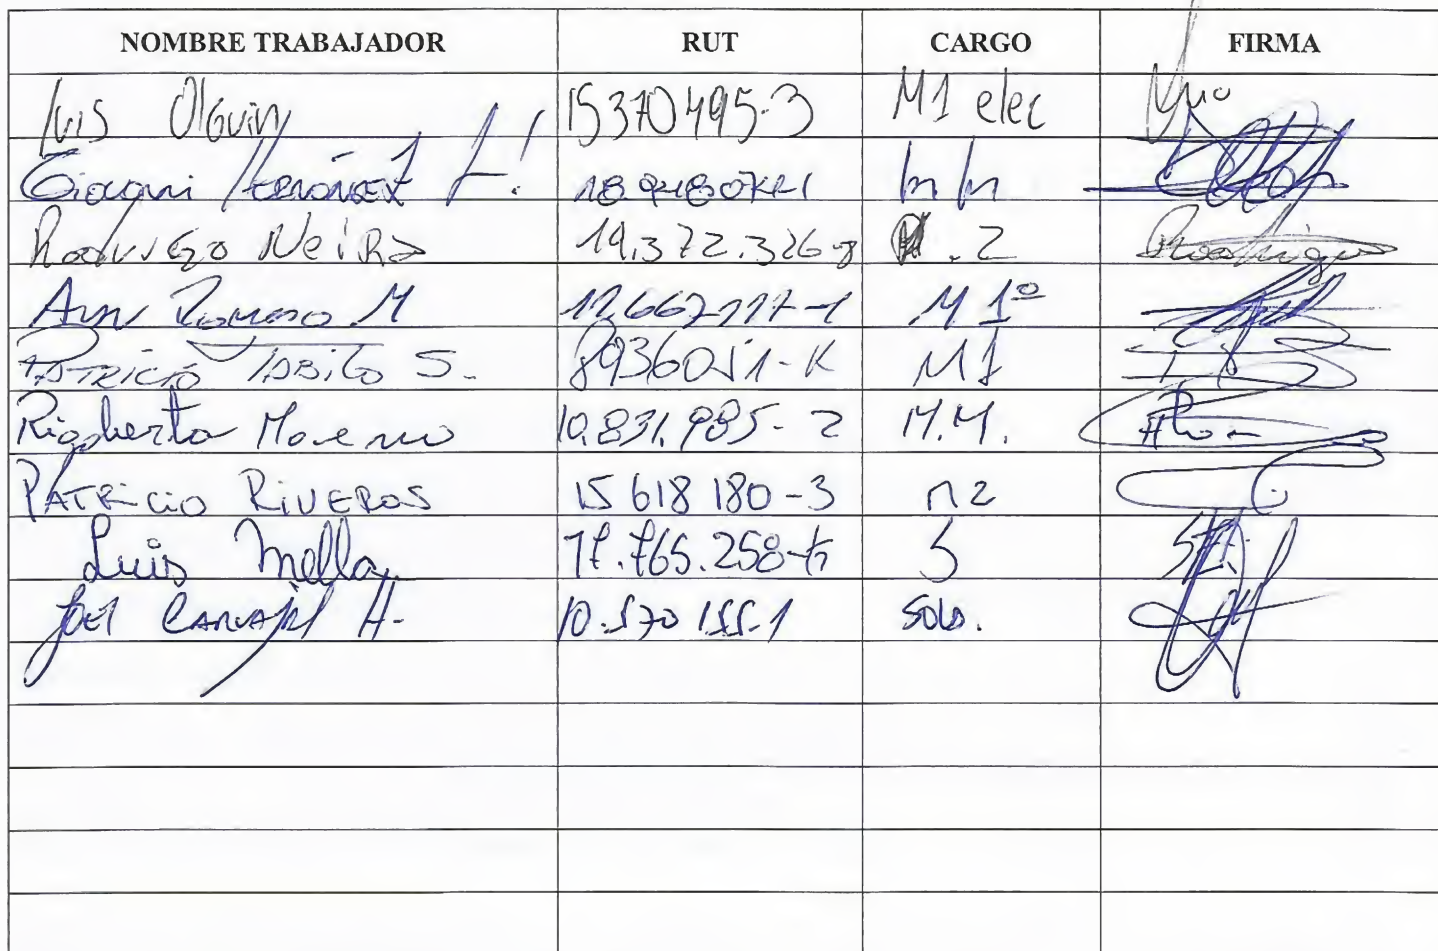 NOMBRE TRABAJADOR RUT CARGO FIRMA
Luis Olguin 15370495-3 M1 elec
Hernández
Rodrigo Neira 19.372.326-8 .2 Rodrigo
Romero M M 1º
Patricio S. 8936051-K M1
Rigoberto Moreno 10.831.985-2 M.M.
PATRiCiO RiVEROS 15 618 180-3 M2
Luis Mella 17.765.258- S
Joel Carvajal H. 10.570 155-1 SOLD.